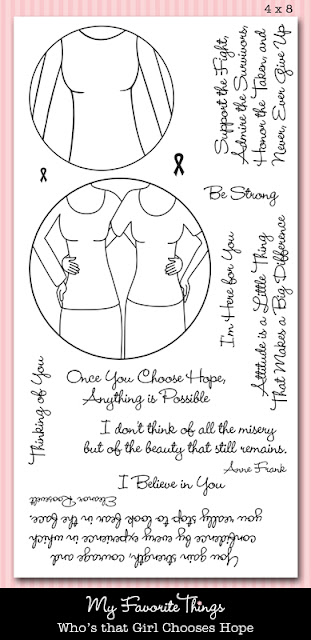 4 x 8
Support the Fight,
Admire the Survivors,
Honor the Taken, and
Never, Ever Give Up
Be Strong
I'm Here for You
Attitude is a Little Thing
That Makes a Big Difference
Thinking of You
Once You Choose Hope,
Anything is Possible
I don't think of all the misery
but of the beauty that still remains.
Anne Frank
I Believe in You
You gain strength, courage and
confidence by every experience in which
you really stop to look fear in the face.
Eleanor Roosevelt
My Favorite Things
Who's that Girl Chooses Hope